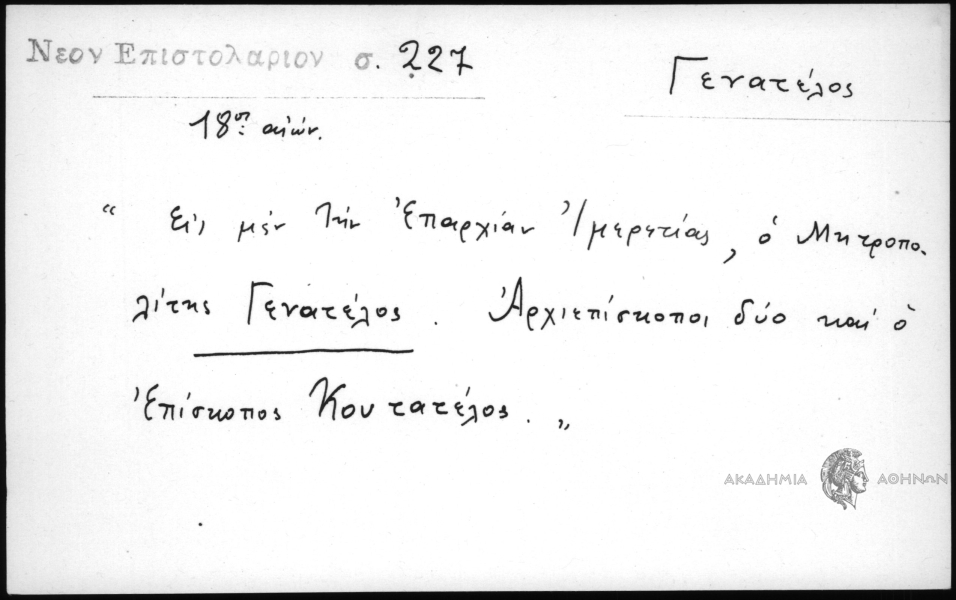 Νεον Επιστολαριον σ. 227
Γενατέλος
18ος αιών.
“ Εἰς μὲν τὴν Ἐπαρχίαν Ἰμερετίας, ὁ Μητροπο-
λίτης Γενατέλος. Ἀρχιεπίσκοποι δύο καὶ ὁ
Ἐπίσκοπος Κουτατέλος. „
ΑΚΑΔΗΜΙΑ ΑΘΗΝΩΝ